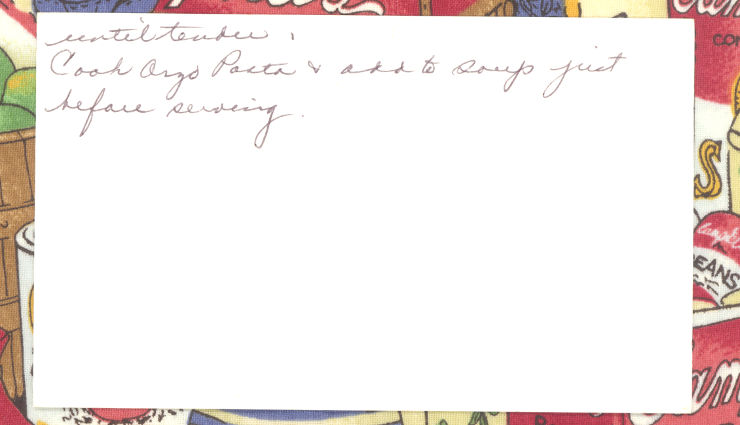 until tender.
Cook Orzo Pasta & add to soup just
before serving.
COM
S
Campbell
BEANS